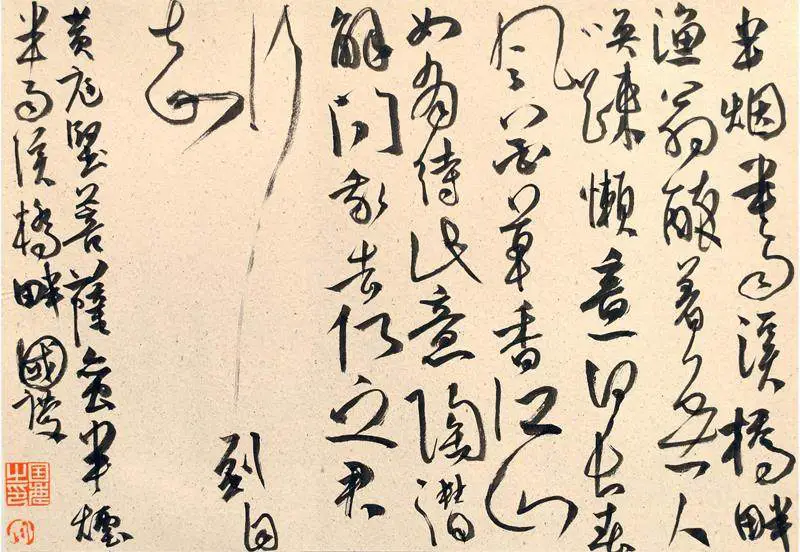 半烟半雨溪橋畔
渔翁醉着無人
唤疎懶意何长春
风花草香江山
如有待此意陶潜
解问我去何之君
行到自
知
黄庭堅菩薩蛮半煙
半雨溪橋畔國